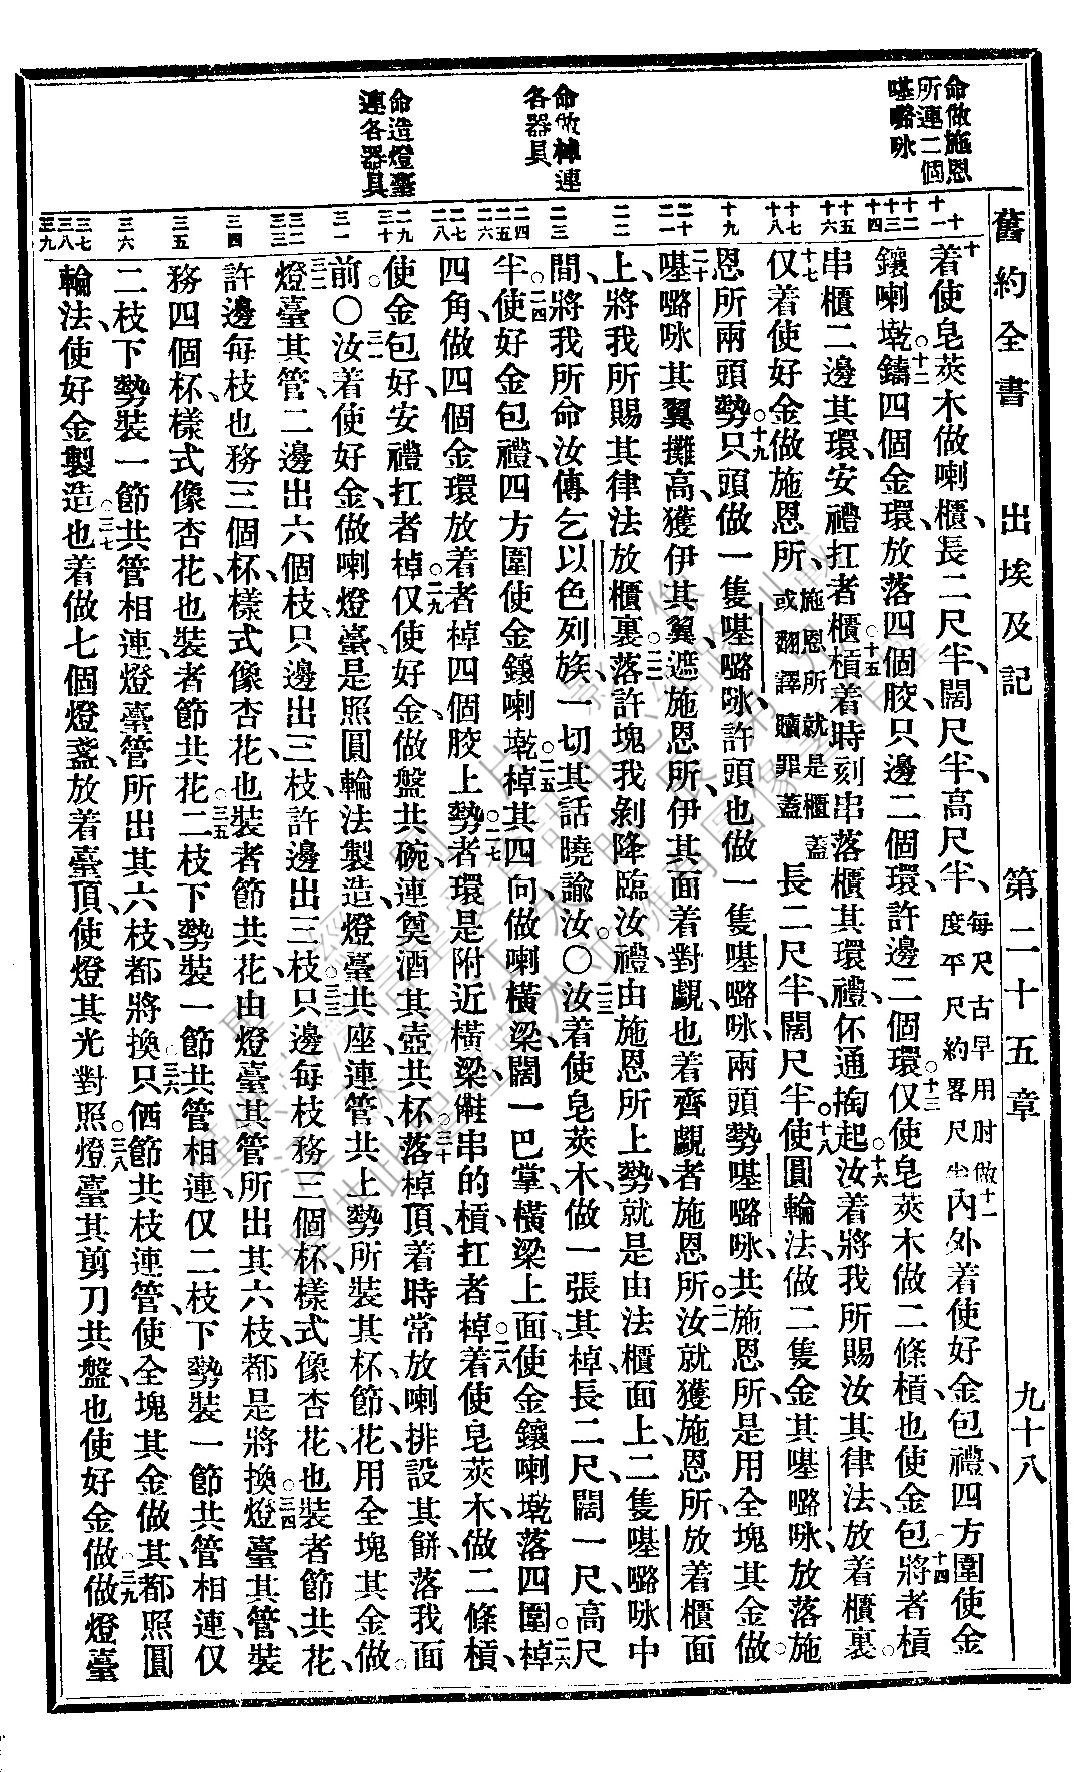 舊約全書 出埃及記 第二十五章 九十八
命做施恩
所連二個
𠼻嚕咏
命做棹連
各器具
命造燈臺
連各器具
十 十一
十二 十三 十四
十五 十六
十七 十八
十九
二十 二一
二二
二三
二四 二五 二六
二七 二八
二九 三十
三一
三二 三三
三四
三五
三六
三七 三八 三九
十着使皂莢木做喇櫃、長二尺半、闊尺半、高尺半、每尺古早用肘做度平尺約畧尺半十一內外着使好金包禮、四方圍使金
鑲喇墘。十二鑄四個金環、放落四個骹、只邊二個環、許邊二個環。十三仅使皂莢木做二條槓、也使金包。十四將者槓
串櫃二邊其環、安禮扛者櫃。十五槓着時刻串落櫃其環禮、伓通掏起。十六汝着將我所賜汝其律法、放着櫃裏。
十七仅着使好金做施恩所、施恩所就是櫃蓋或翻譯贖罪蓋長二尺半、闊尺半。十八使圓輪法、做二隻金其𠼻嚕咏、放落施
恩所兩頭勢。十九只頭做一隻𠼻嚕咏、許頭也做一隻𠼻嚕咏、兩頭勢𠼻嚕咏、共施恩所、是用全塊其金做。
二十𠼻嚕咏其翼攤高、獲伊其翼、遮施恩所、伊其面着對覷、也着齊覷者施恩所。二一汝就獲施恩所、放着櫃面
上、將我所賜其律法放櫃裏。二二落許塊我剝降臨汝、禮由施恩所上勢、就是由法櫃面上、二隻𠼻嚕咏中
間、將我所命汝傳乞以色列族、一切其話曉諭汝。〇二三汝着使皂莢木、做一張其棹、長二尺、闊一尺、高尺
半。二四使好金包禮、四方圍使金鑲喇墘。二五棹其四向做喇橫梁、闊一巴掌、橫梁上面、使金鑲喇墘、落四圍。二六棹
四角做四個金環、放着者棹四個骹上勢。二七者環是附近橫梁、𠆧串的槓扛者棹。二八着使皂莢木、做二條槓、
使金包好、安禮扛者棹。二九仅使好金、做盤共碗、連奠酒其壺共杯。三十落棹頂、着時常放喇排設其餅、落我面
前。〇三一汝着使好金、做喇燈臺、是照圓輪法製造、燈臺共座、連管、共上勢所裝其杯、節、花、用全塊其金做。
三二燈臺其管、二邊出六個枝、只邊出三枝、許邊出三枝。三三只邊每枝務三個杯、樣式像杏花、也裝者節共花、
許邊每枝也務三個杯、樣式像杏花、也裝者節共花、由燈臺其管所出其六枝、都是將換。三四燈臺其管、裝
務四個杯、樣式像杏花、也裝者節共花。三五二枝下勢裝一節共管相連、仅二枝下勢裝一節共管相連、仅
二枝下勢裝一節共管相連、燈臺管所出其六枝、都將換。三六只俩節共枝連管、使全塊其金做、其都照圓
輪法、使好金製造。三七也着做七個燈盞、放着臺頂、使燈其光對照燈臺。三八其剪刀共盤、也使好金做。三九做燈臺